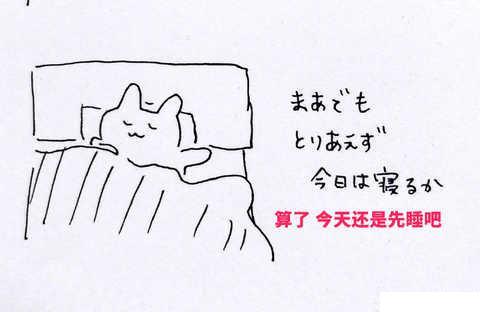 まあでも
とりあえず
今日は寝るか
算了 今天还是先睡吧